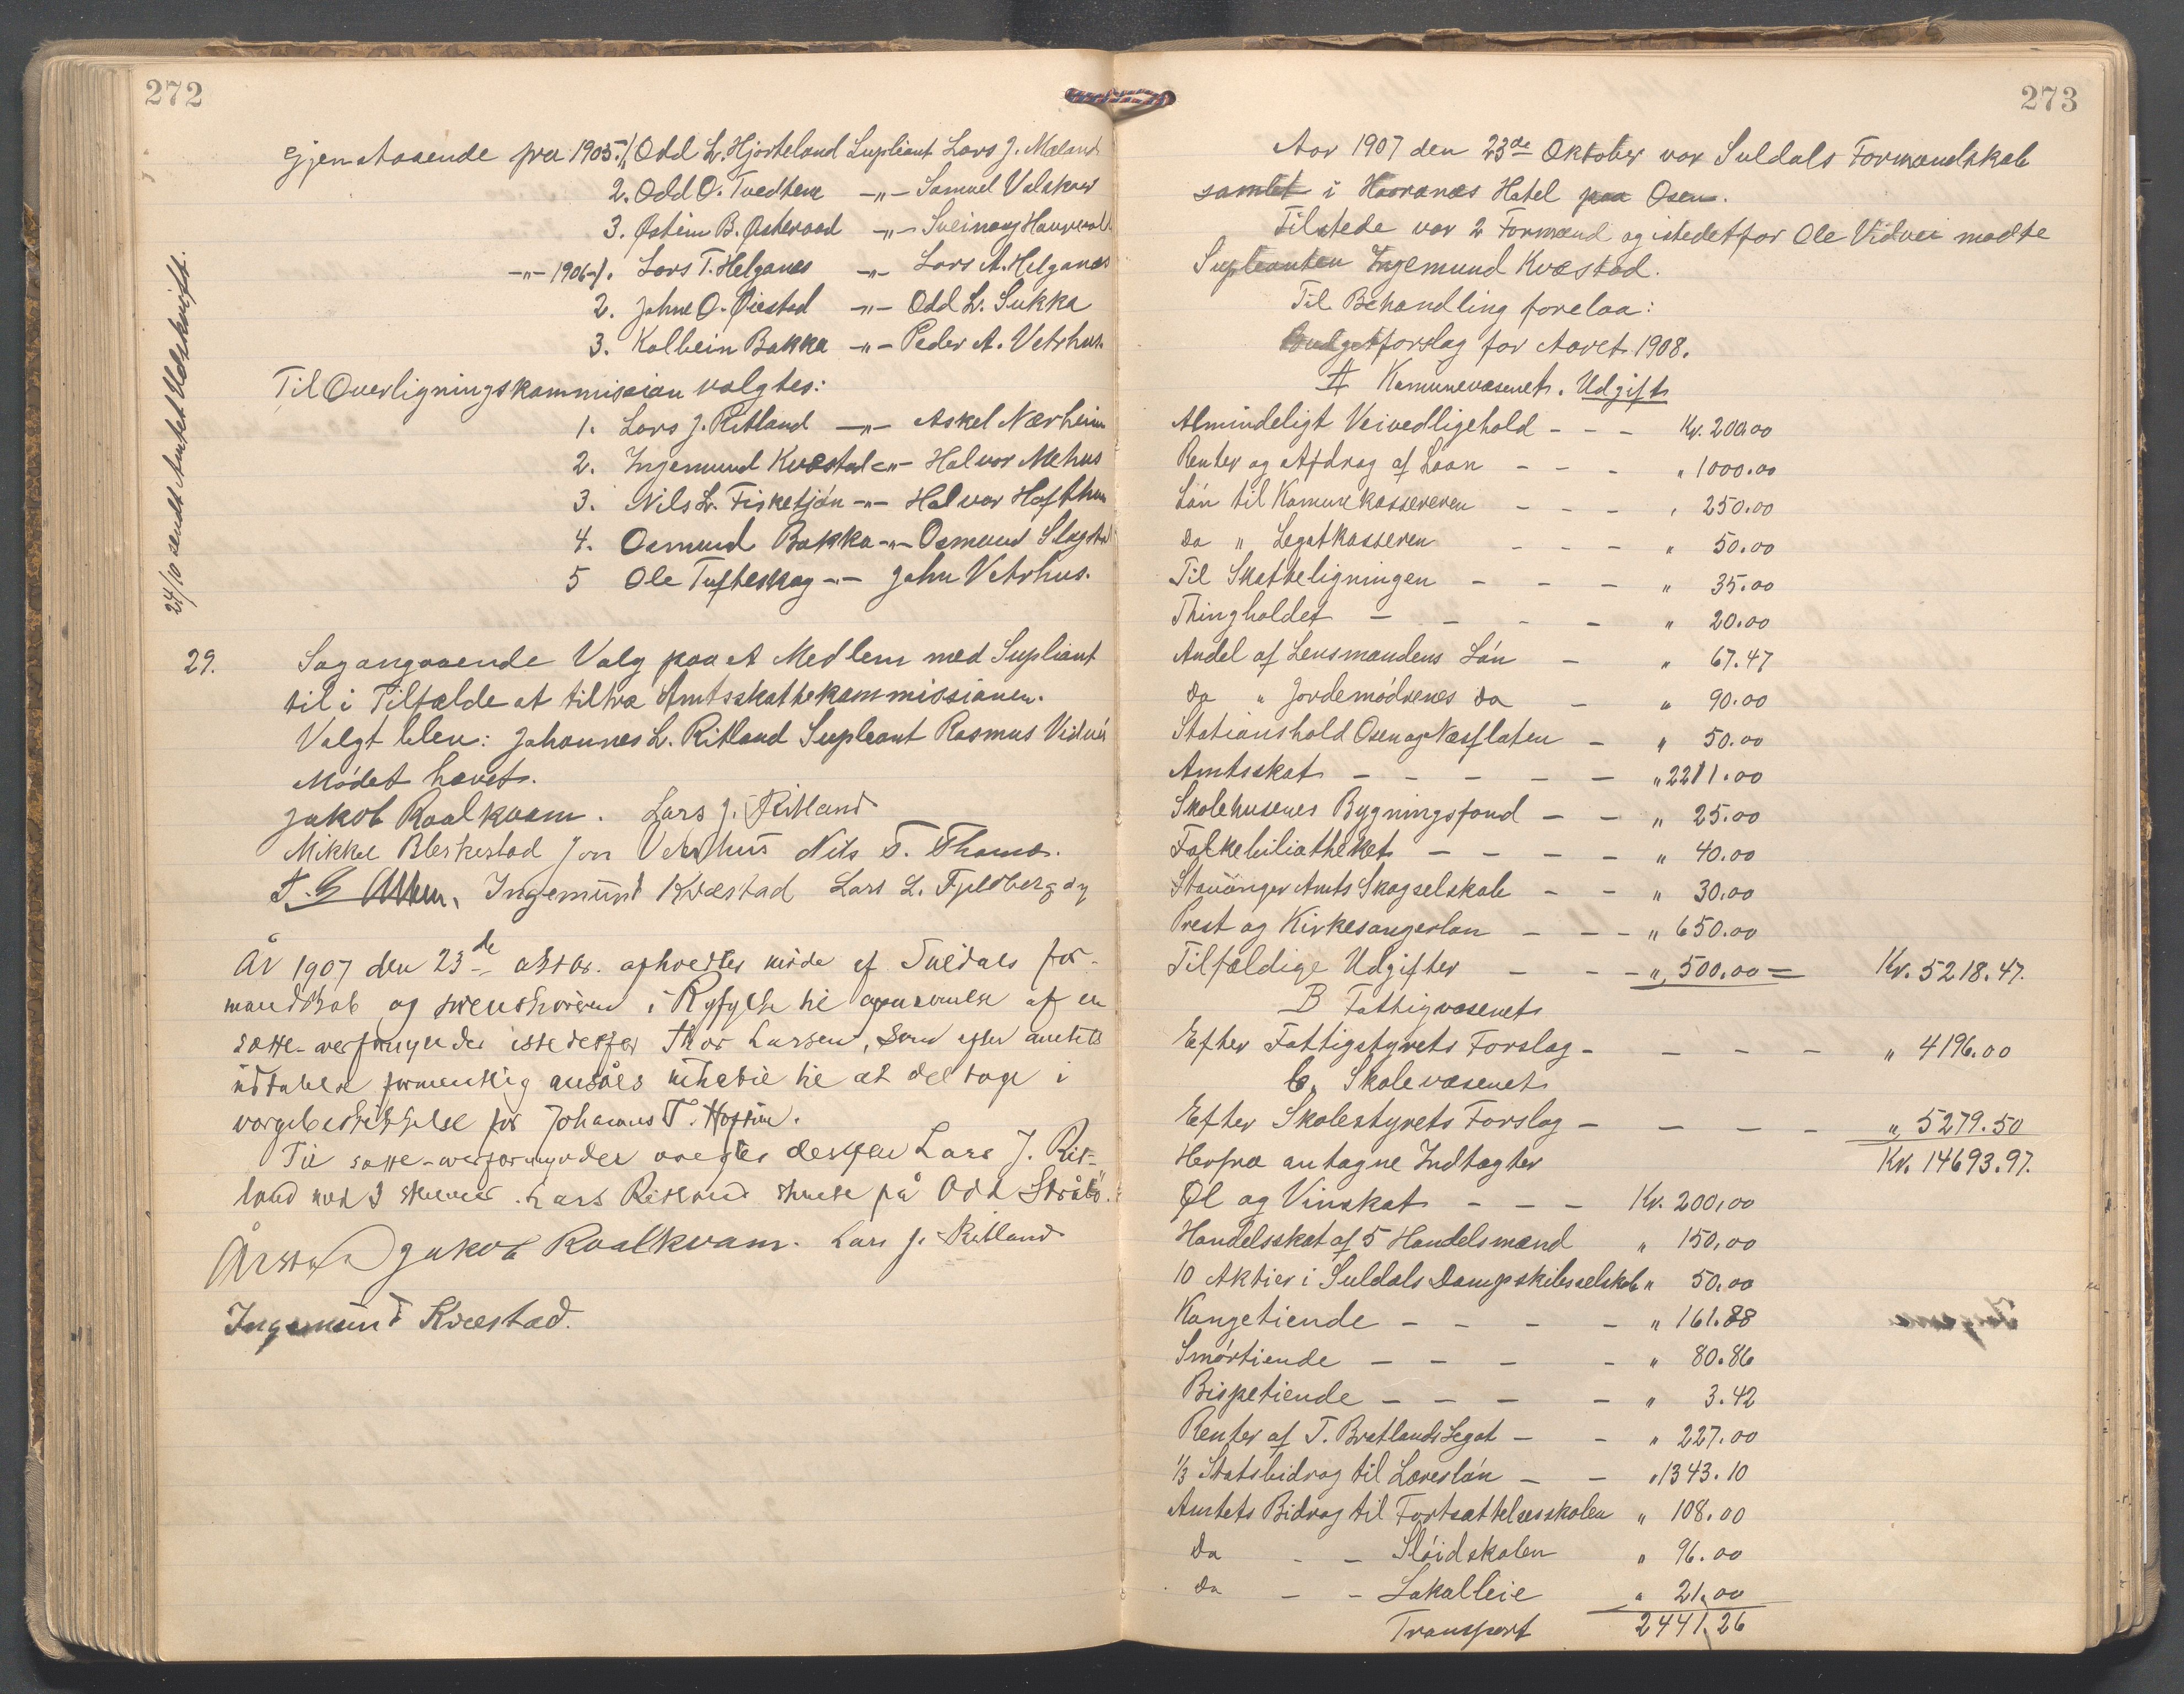 272
Gjenstaaende fra 1905. 1. Odd L. Hjorteland Supliant Lars J. Mæland
2. Odd O. Tvedtene -"- Samuel Valskaar
3. Østein B. Østeraad -"- Sveinung Havrevold
-"- 1906-1. Lars T. Helganes -"- Lars A. Helganes
2. Johne O. Øiestad -"- Odd L. Sukka
3. Kolbein Bakka -"- Peder A. Vetrhus
Til Overligningskommissian valgtes:
1. Lars J. Ritland -"- Askel Nærheim
2. Ingemund Kvæstad -"- Halvor Mehus
3. Nils L. Fisketjøn -"- Halvor Hofthun
4. Osmund Bakka -"- Osmund Slagstad
5 Ole Tufteskog -"- John Vetrhus.
24/10 sendt Amtet Udskrift.
29. Sag angaaende Valg paa et Medlem med Supliant
til i Tilfælde at tiltræ Amtsskattekommissianen.
Valgt blev: Johannes L. Ritland Supleant Rasmus Vidvei
Mødet hævet.
Jakob Raalkvam. Lars J. Ritland
Mikkel Bleskestad Jon Vetrhus Nils T. Thomæ.
Ingemund Kvæstad Lars L. Fjeldberg
År 1907 den 23de oktbr. afholdtes møde af Suldals for-
mandskab og sorenskriveren i Ryfylke til opnævnelse af en
sætte-værge istedetfor Thor Larsen, som efter amtets
udtalelse formentlig ansåes inhabil til at deltage i
værgebeskikkelse for Johannes T. Hoftun.
Til sætte- valgtes derefter Lars J. Rit-
land mod 3 stemmer. Lars Ritland stemte på Odd Stråbø.
Jakob Raalkvam. Lars J. Ritland
Ingemund Kvæstad.
273
Aar 1907 den 23de Oktober var Suldals Formandskab
samlet i Haaranæs Hotel paa Osen.
Tilstede var 2 Formænd og istedetfor Ole Vidvei mødte
Supleanten Ingemund Kvæstad.
Til Behandling forelaa:
Budgetforslag for Aaret 1908.
A Komunevæsenet. Udgift
Almindeligt Veivedligehold - - - Kr. 200.00
Renter og Afdrag af Laan - - - " 1000.00
Løn til Komunekassereren - - - " 250.00
Do " Legatkasseren - - - " 50.00
Til Skatteligningen - - - " 35.00
Thingholdet - - - - " 20.00
Andel af Lensmandens Løn - " 67.47
Do " Jordemødrenes Do - " 90.00
Stationshold Osen og Næsflaten - " 50.00
Amtsskat - - - - - " 2211.00
Skolehusenes Bygningsfond - - " 25.00
Folkebiliotheket - - - - " 40.00
Stavanger Amts Skogselskab - - " 30.00
Prest og Kirkesangerløn - - - " 650.00
Tilfældige Udgifter - - - " 500.00 = Kr. 5218.47.
B Fattigvæsenet
Efter Fattigstyrets Forslag - - - - " 4196.00
C. Skolevæsenet
Efter Skolestyrets Forslag - - - - " 5279.50
Herfra antagne Indtægter Kr. 14693.97.
Øl og Vinskat - - - Kr. 200,00
Handelsskat af 5 Handelsmænd " 150,00
10 Aktier i Suldals Dampskibsselskab " 50.00
Kongetiende - - - - " 161.88
Smørtiende - - - - " 80.86
Bispetiende - - - - " 3.42
Renter af T. Bratlands Legat - - " 227.00
1/3 Statsbidrag til Læresløn - - " 1343.10
Amtets Bidrag til Fortsættelsesskolen " 108.00
Do - - Sløidskolen " 96.00
Do - - Lokalleie " 21.00
Transport 2441.26